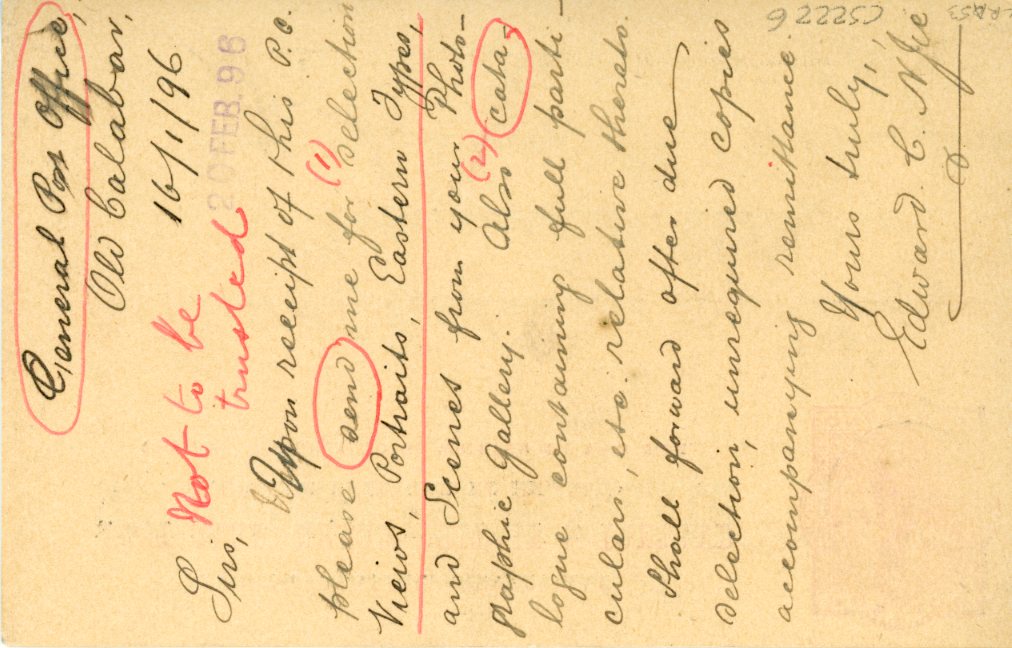 General Post Office,
Old Calabar,
16/1/96
20 FEB. 96
Not to be
trusted
Sir,
Upon receipt of this P.C.
(1)
please send me for selection
Views, Portraits, Eastern Types,
and Scenes from your Photo-
graphic Gallery. (2) Also cata-
logue containing full parti-
culars, etc. relative thereto.
Shall forward after due
selection, unrequired copies
accompanying remittance.
Yours truly,
Edward C.
C52226